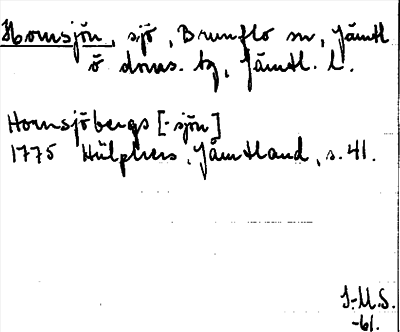 Hornsjön, sjö, Brunflo sn, Jämtl
ö doms. tg, Jämtl. l.
Hornsjöbergs [-sjön]
1775 Hülphers, Jämtland, s. 41.
I-M.S.
-61.